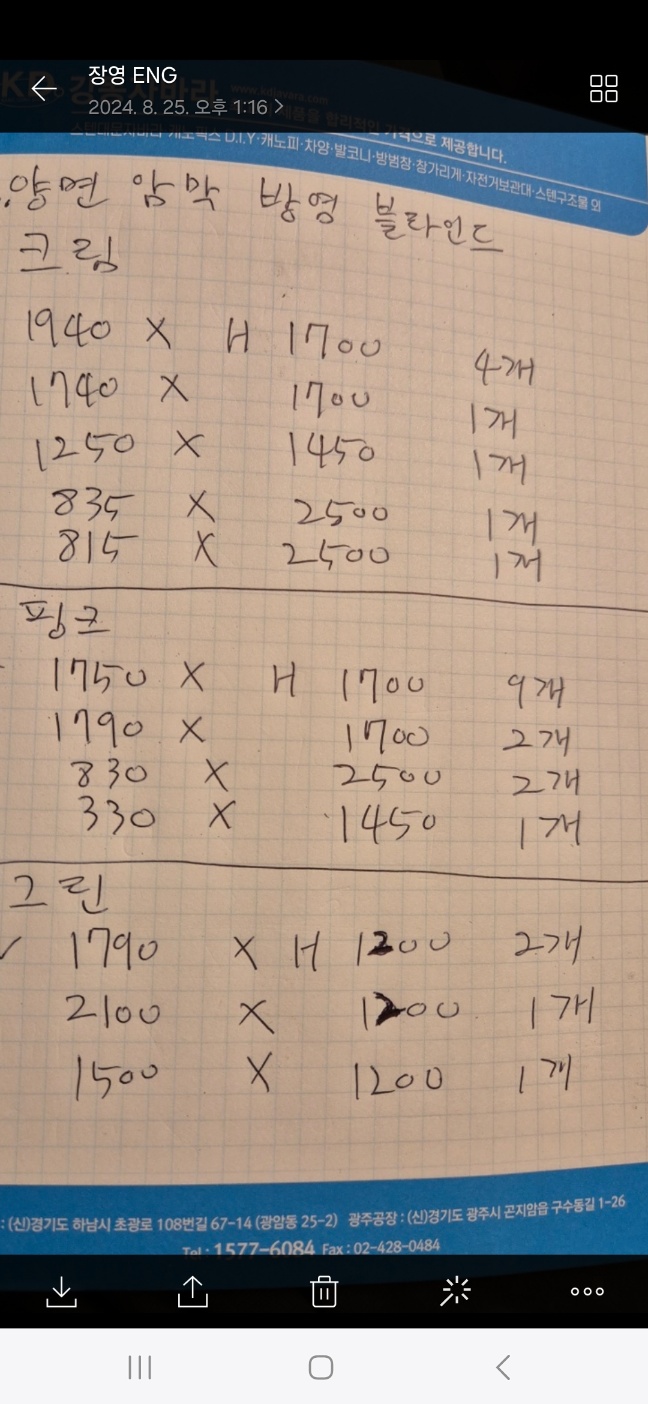 장영 ENG
2024. 8. 25. 오후 1:16
가격으로 제공합니다.
D.I.Y·캐노피·차양·발코니·방범창·창가리개·자전거보관대·스텐구조물 외
양면 암막 방영 블라인드
크림
1940 X H 1700 4개
1740 X 1700 1개
1250 X 1450 1개
835 X 2500 1개
815 X 2500 1개
핑크
1750 X H 1700 9개
1790 X 1700 2개
830 X 2500 2개
330 X 1450 1개
그린
✓ 1790 X H 1200 2개
2100 X 1200 1개
1500 X 1200 1개
: (신)경기도 하남시 초광로 108번길 67-14 (광암동 25-2) 광주공장 : (신)경기도 광주시 곤지암읍 구수동길 1-26
Tel : 1577-6084 Fax : 02-428-0484